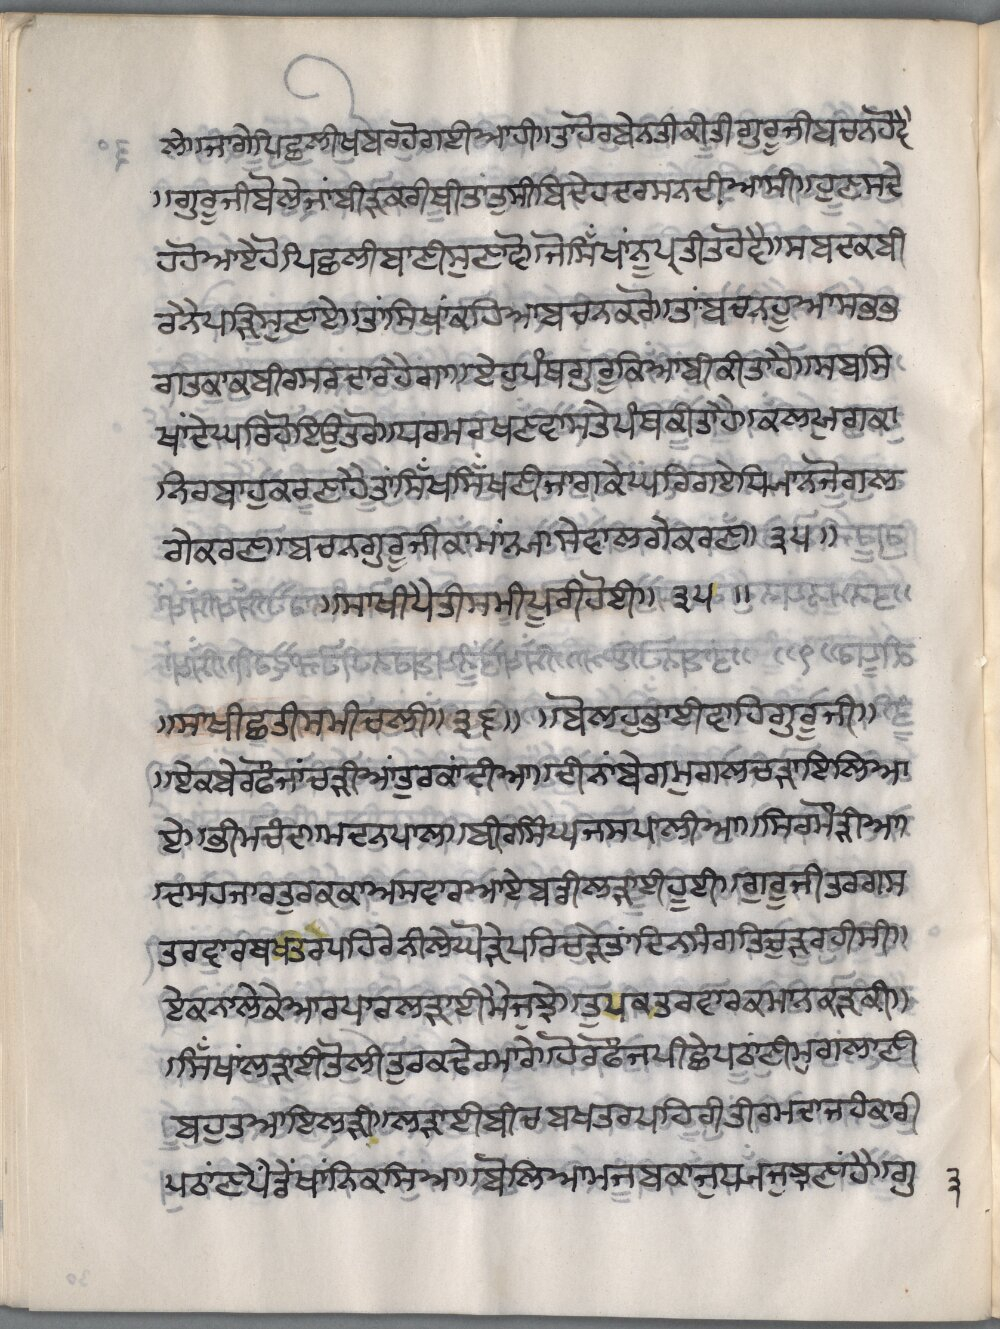 ਲੇ॥ਜਾਗੇ॥ਪਿਛਲੀਖਬਰਹੋਗਈਆਹੀ॥ਤਾਹੋਰਬੇਨਤੀਕੀਤੀਗੁਰੂਜੀਬਚਨਹੋਵੈ
॥ਗੁਰੂਜੀਬੋਲੇਜਾਂਬੀੜਕਰੀਥੀਤਾਂਤੁਸੀਬਿਦੇਹਦਰਸਨਦੀਆਸੀ॥ਹੁਣਸਦੇ
ਹਹੋਆਏਹੋ॥ਪਿਛਲੀਬਾਣੀਸੁਣਾਵੋ॥ਜੋਸਿੱਖਾਂਨੂਪ੍ਰਤੀਤਹੋਵੈ॥ਸਬਦਕਬੀ
ਰਨੈਪੜਿਸੁਣਾਏ॥ਤਾਂਸਿਖਾਂਕਹਿਆਬਚਨਕਰੋ॥ਤਾਂਬਚਨਹੂਆਸਭਭ
ਗਤਕਾਕਬੀਰਸਰਦਾਰਹੈਗਾ॥ਏਹੁਪੰਥਗੁਰੂਕਿਆਬੀਕੀਤਾਹੈ॥ਸਬਸਿ
ਖਾਂਦੇਘਰਿਹੋਇਉਤਰੋ॥ਧਰਮਰਖਣਵਾਸਤੇਪੰਥਕੀਤਾਹੈ॥ਕਲਯੁਗਕਾ
ਨਿਰਬਾਹੁਕਰਣਾਹੈਤਾਂਸਿੱਖਸਿੱਖਣੀਜਾਗਕੇਘਰਿਗਏਧਿਆਨਜੋਗਲ
ਗੇਕਰਣ॥ਬਚਨਗੁਰੂਜੀਕਾਮਾਂਨਆਸੇਵਾਲਗੇਕਰਣ॥੩੫॥
॥ਸਾਖੀਪੈਤੀਸਮੀਪੂਰੀਹੋਈ॥੩੫॥
॥ਸਾਖੀਛਤੀਸਮੀਚਲੀ॥੩੬॥ ॥ਬੋਲਹੁਭਾਈਵਾਹਿਗੁਰੂਜੀ॥
॥ਏਕਬੇਰਫੌਜਾਂਚੜੀਆਂਤੁਰਕਾਂਦੀਆ॥ਦੀਨਾਂਬੇਗਮੁਗਲਚੜਾਇਲਿਆ
ਏ॥ਭੀਮਚੰਦ॥ਮਦਨਪਾਲ॥ਬੀਰਸਿੰਘਜਸਪਾਲੀਆ॥ਸਿਰਮੌੜੀਆ॥
॥ਦਸਹਜਾਰਤੁਰਕਕਾਅਸਵਾਰਆਏਬਡੀਲੜਾਈਹੂਈ॥ਗੁਰੂਜੀਤਰਗਸ
ਤਰਵਾਰਬਖਤਰਪਹਿਰੇਨੀਲੇਘੋੜੇਪਰਿਚੜੇਤਾਂਦਿਨਸੰਗਤਿਚੁੜਰਹੀਸੀ॥
ਏਕਨਾਲੇਕੇਆਰਪਾਰਲੜਾਈਮੈਜੂਝੇ॥ਤੁਪਕਤਰਵਾਰਕਮਾਨਕੜਕੀ॥
॥ਸਿੱਖਾਂਲੜਾਈਤੋਲੀਤੁਰਕਢੇਰਮਾਰੇ॥ਹੋਰਫੌਜਪੀਛੇਪਠਾਂਣੀਮੁਗਲਾਣੀ
ਬਹੁਤਆਇਲੜੀ॥ਲੜਾਈਬੀਚਬਖਤਰਪਹਿਰੀਤੀਰਸਦਾਜਹੀਕਾਰੀ
ਪਠਾਂਣਪੈਂਡੇਖਾਂਨਿਕਸਿਆ॥ਬੋਲਿਆਮਜਬਕਾਜੁਧਜਜੂਝਣਾਂਹੈ॥ਗੁ
੩